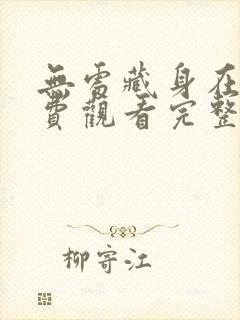 無處藏身在
費觀看完整
柳寄江